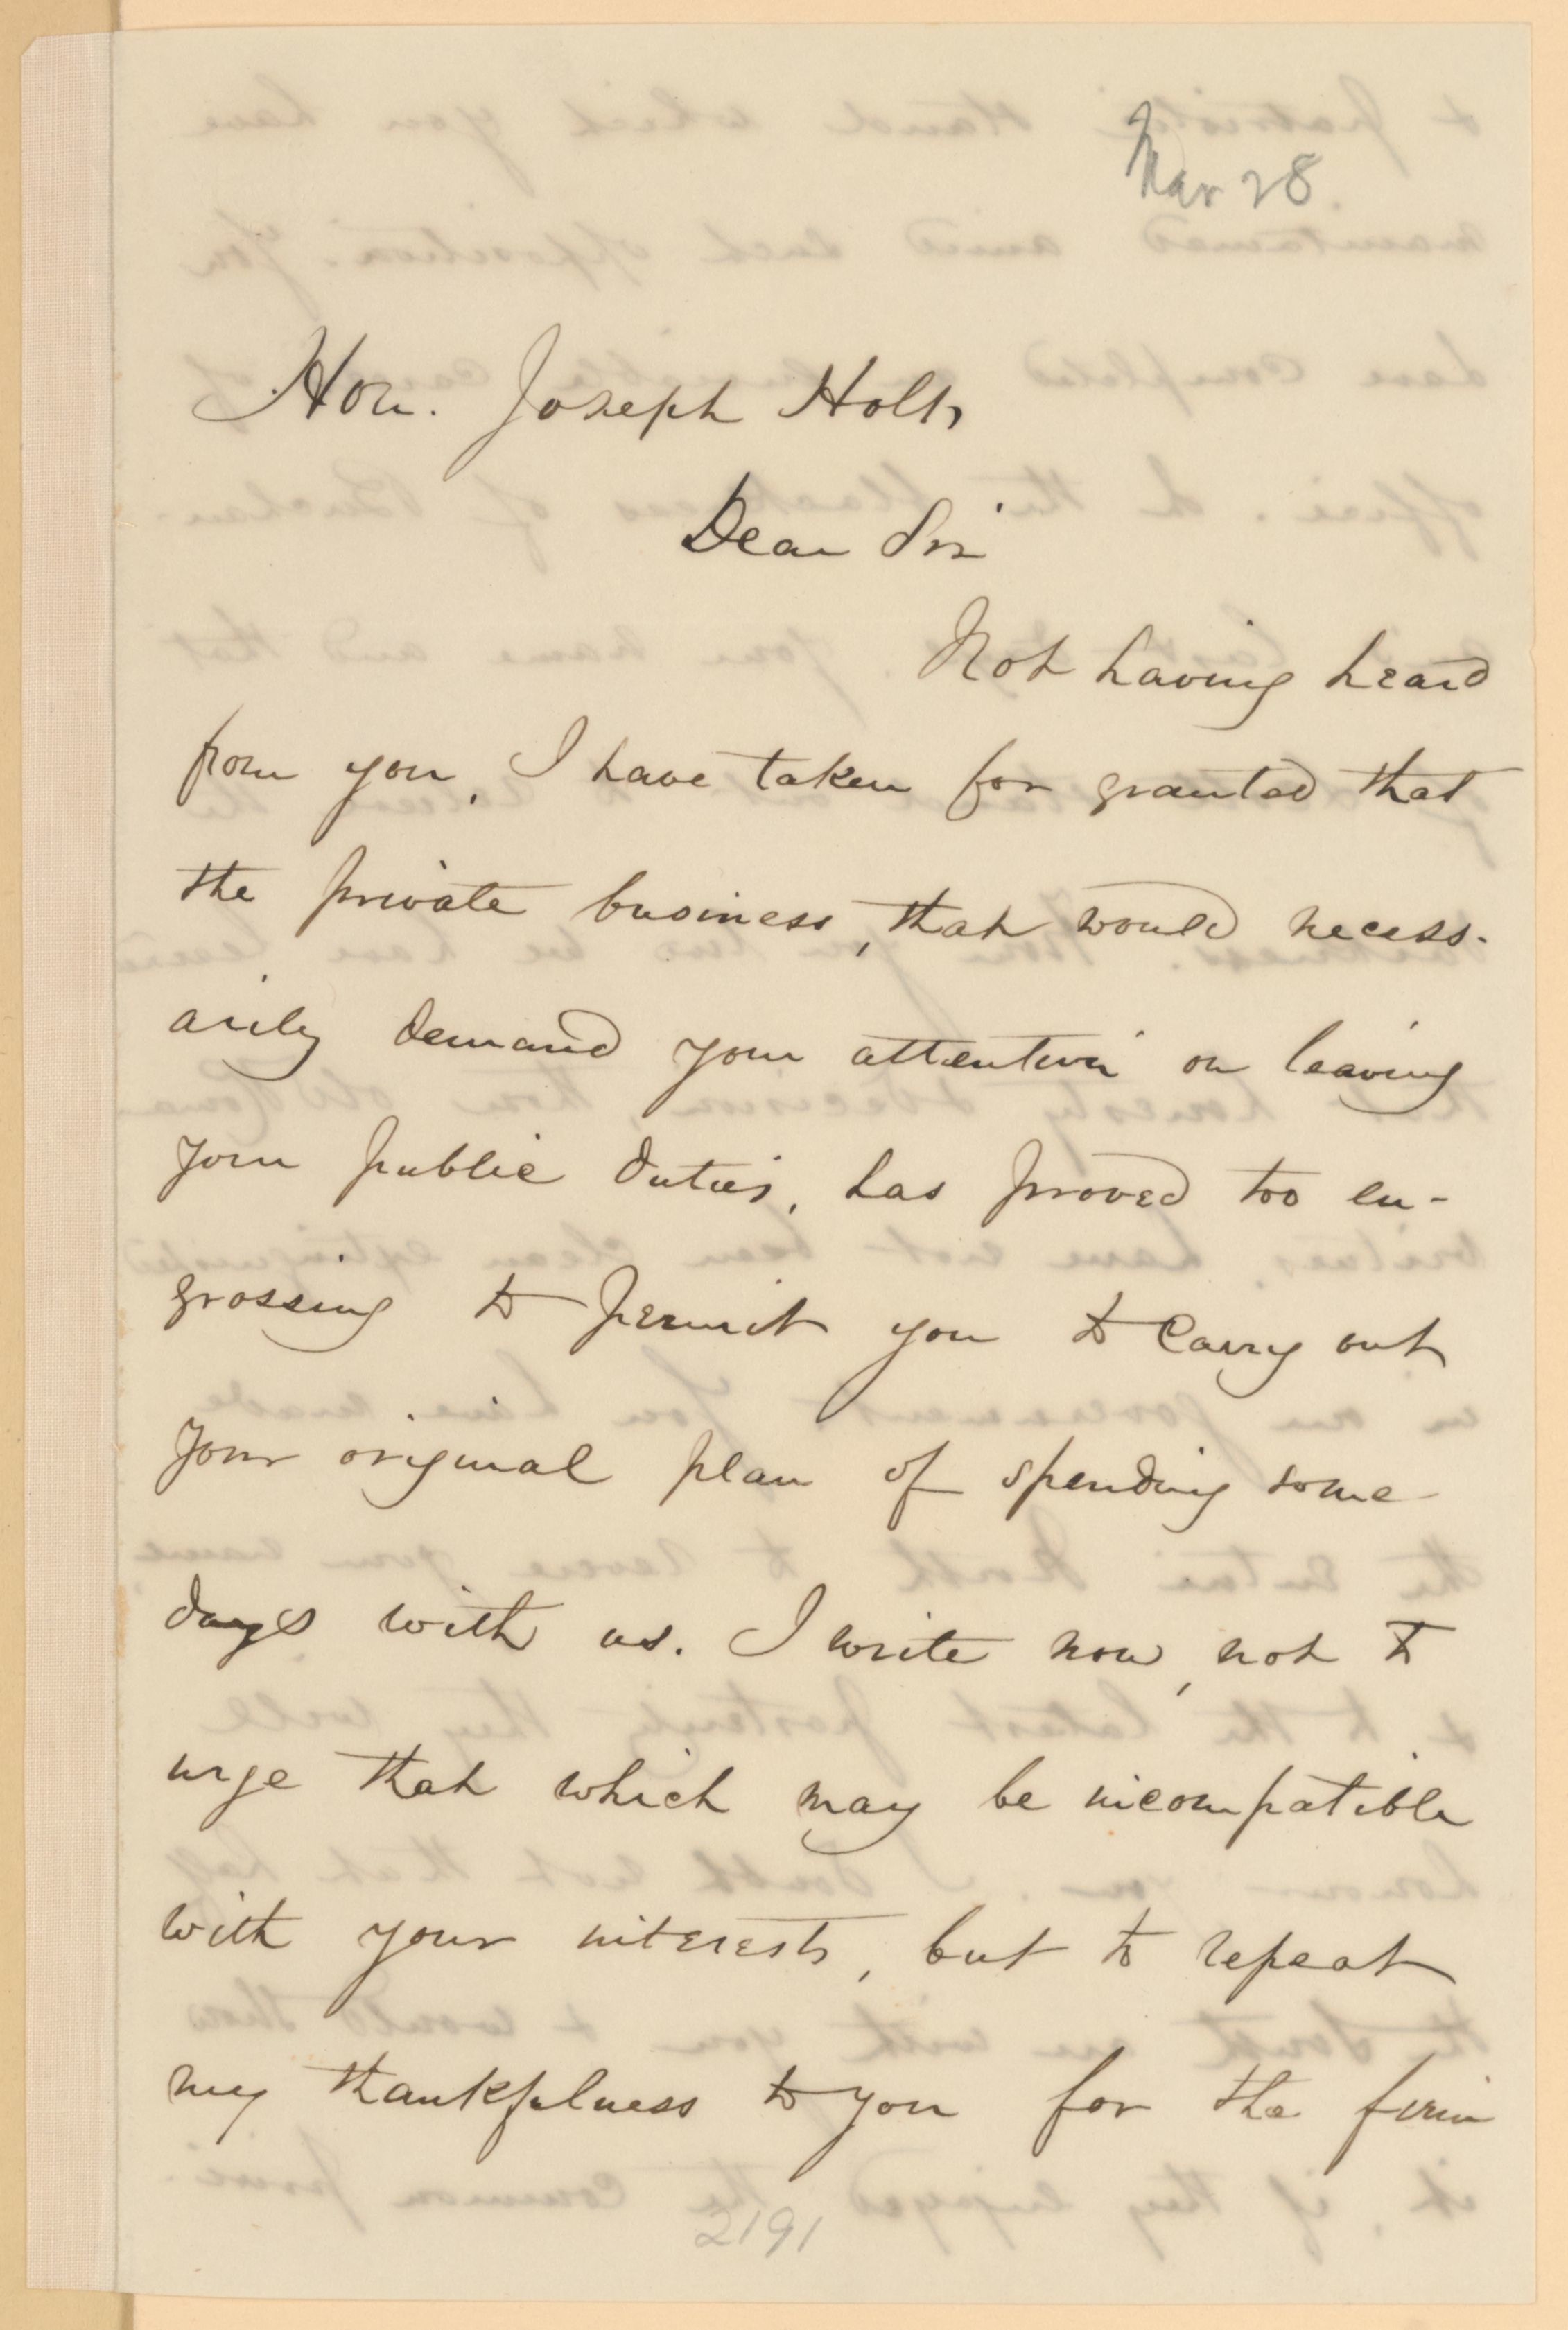 Mar 28
Hon. Joseph Holt,
Dear Sir
Not having heard
from you, I have taken for granted that
the private business, that would necess-
arily demand your attention on leaving
your public duties, has proved too en-
grossing to permit you to carry out
your original plan of spending some
days with us. I write now, not to
urge that which may be incompatible
with your interests, but to repeat
my thankfulness to you for the firm
2191